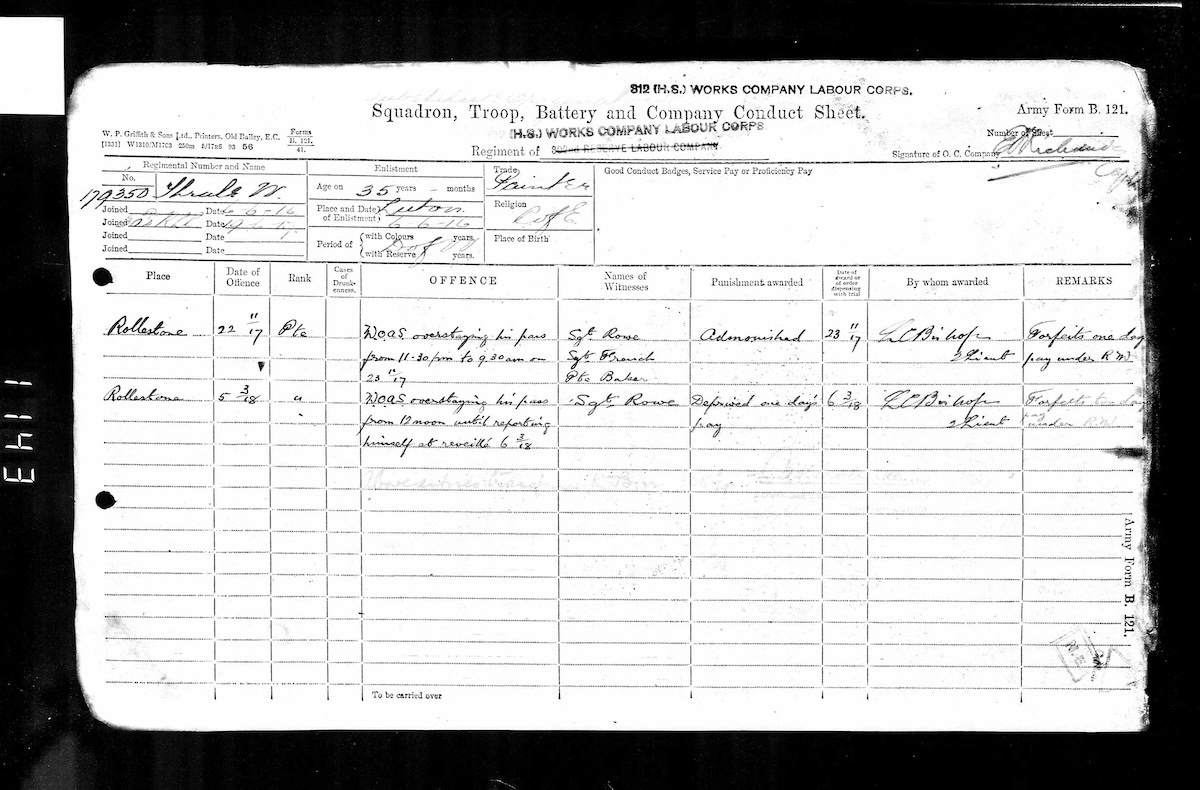 812 (H.S.) WORKS COMPANY LABOUR CORPS.
Squadron, Troop, Battery and Company Conduct Sheet.
Army Form B. 121.
W. P. Griffith & Sons Ltd., Printers, Old Bailey, E.C.
[1331] W1310/M1703 250m 3/17r6 93 56
Forms
B. 121.
41.
(H.S.) WORKS COMPANY LABOUR CORPS
Regiment of RESERVE LABOUR COMPANY
Number of Sheet
Signature of O. C. Company
Regimental Number and Name
No.
179350 Thrale W.
Joined Date 6-6-16
Joined Date
Joined Date
Joined Date
Enlistment
Age on 35 years - months
Place and Date of Enlistment Luton
6-6-16
Period of with Colours years.
with Reserve years.
D of W
Trade
Painter
Religion
C of E
Place of Birth
Good Conduct Badges, Service Pay or Proficiency Pay
Place Date of Offence Rank Cases of Drunkenness. OFFENCE Names of Witnesses Punishment awarded Date of award or of order dispensing with trial By whom awarded REMARKS
Rollestone 22 11/17 Pte W.O.A.S. overstaying his pass Sgt. Rowe Admonished 23 11/17 L C Bishop Forfeits one day
from 11.30 pm to 9.30 am on Sgt French 2 Lieut pay under R.W.
23 11/17 Pte Baker
Rollestone 5 3/18 " W.O.A.S. overstaying his pass Sgt. Rowe Deprived one day's 6 3/18 L C Bishop Forfeits day
from 12 noon until reporting pay 2 Lieut under R.W.
himself at reveille 6 3/18
To be carried over
Army Form B. 121.
1143